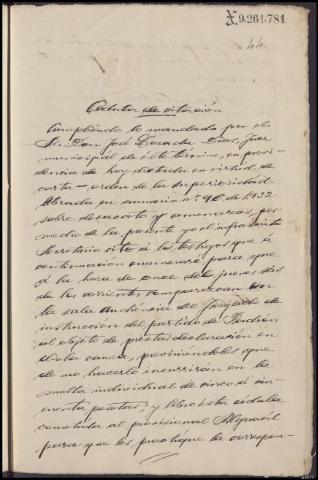 X.9.261.781
44
Cédula de citación
Cumpliendo lo mandado por el
Sr. Don José Posada Dios, Juez
municipal de este término, en provi-
dencia de hoy dictada en virtud de
carta-orden de la Superioridad
librada en sumario nº 96 de 1932
sobre desacato y amenazas, por
medio de la presente yo el infrascrito
Secretario cito á los testigos que á
continuación enumeraré para que
á la hora de once del jueves dia
de los corrientes comparezcan en
la sala Audiencia del Juzgado de
instrucción del partido de
al objeto de prestar declaración en
dicha causa, previniéndoles que
de no hacerlo incurrirán en la
multa individual de cinco á cin-
cuenta pesetas; y libro esta cédula
cometida al provisional Alguacil
para que les practique la correspon-